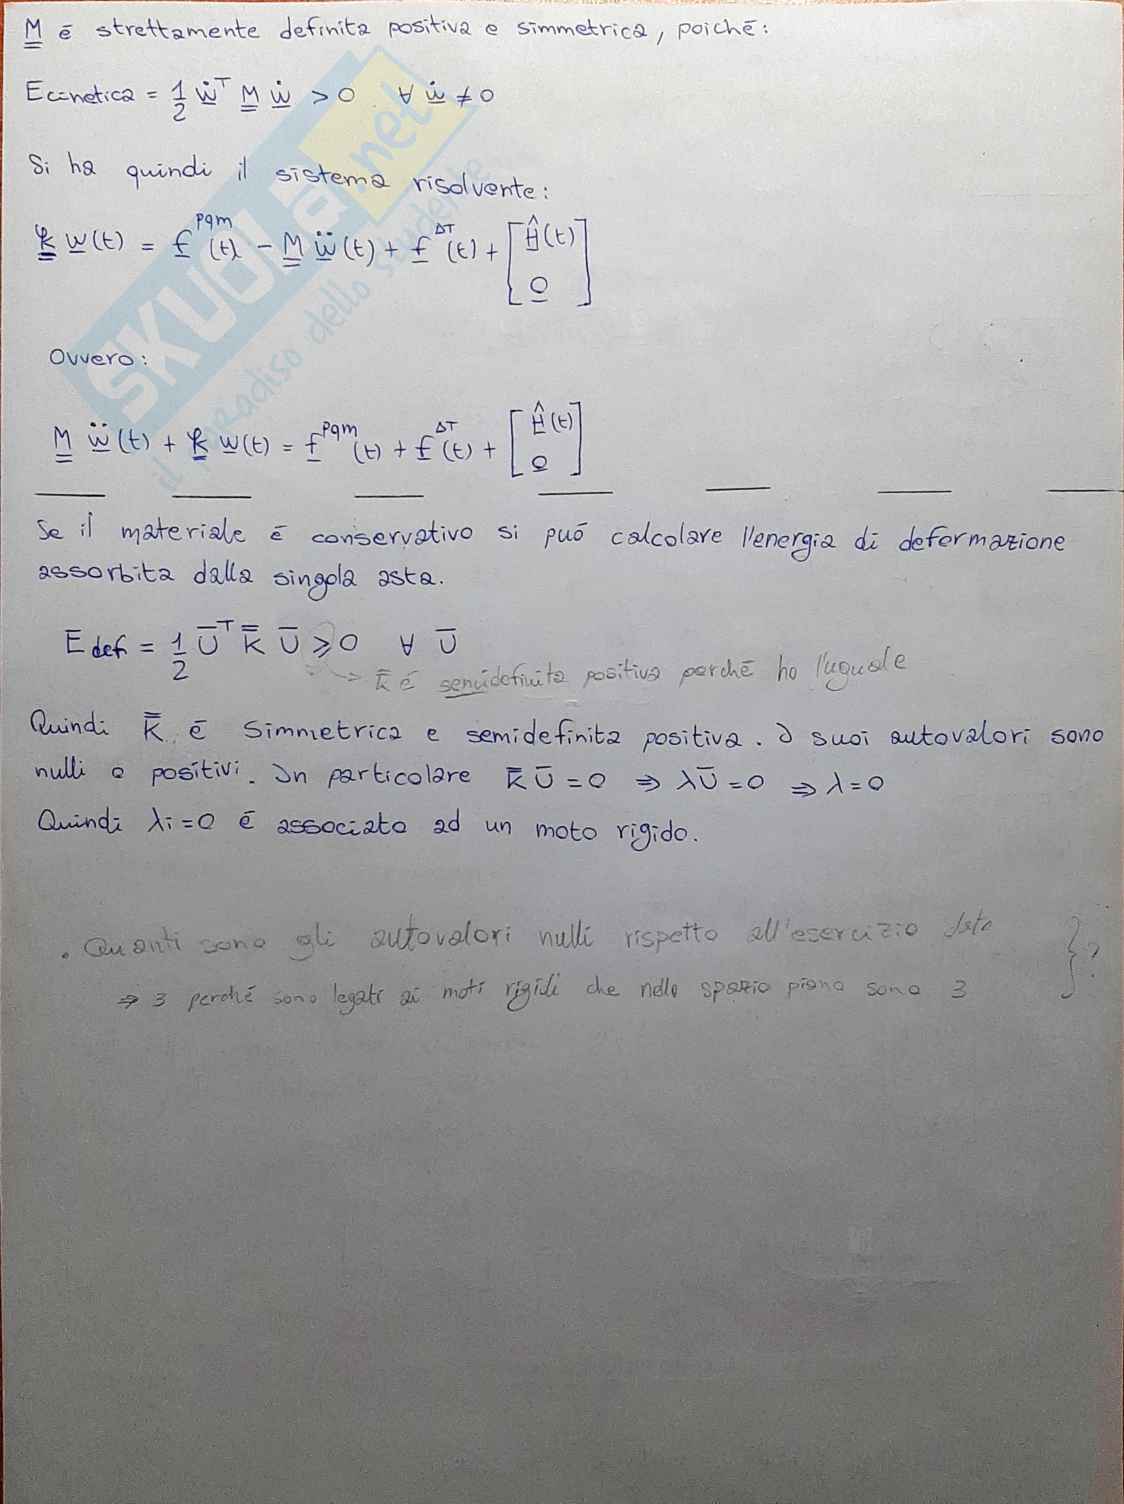 M è strettamente definita positiva e simmetrica, poiché:
Ecinetica = 1/2 ẇᵀ M ẇ > 0 ∀ ẇ ≠ 0
Si ha quindi il sistema risolvente:
K w(t) = f^pqm (t) - M ẅ(t) + f^ΔT (t) + [Ĥ(t) 0]
Ovvero:
M ẅ(t) + K w(t) = f^pqm (t) + f^ΔT (t) + [Ĥ(t) 0]
Se il materiale è conservativo si può calcolare l'energia di deformazione
assorbita dalla singola asta.
E def = 1/2 Ūᵀ K̿ Ū ⩾ 0 ∀ Ū
→ K̿ è semidefinita positiva perché ho l'uguale
Quindi K̿ è simmetrica e semidefinita positiva. I suoi autovalori sono
nulli o positivi. In particolare K̿ Ū = 0 ⇒ λŪ = 0 ⇒ λ = 0
Quindi λi = 0 è associato ad un moto rigido.
• Quanti sono gli autovalori nulli rispetto all'esercizio
⇒ 3 perché sono legati ai moti rigidi che nello spazio piano sono 3 } ?
SKUOLA.net
il paradiso dello studente